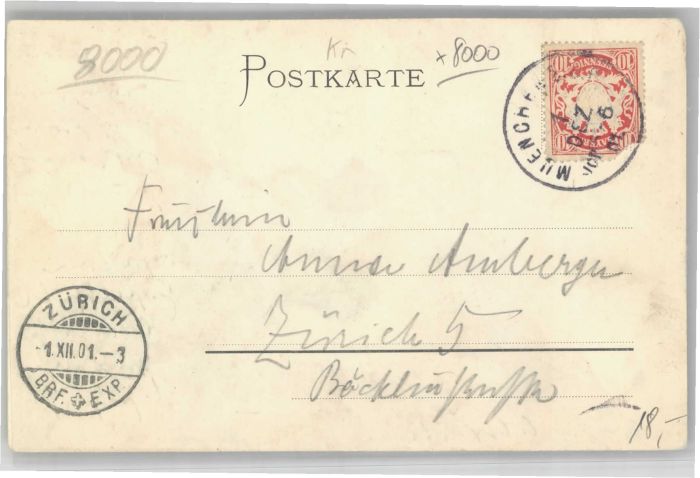 8000
Kr
+8000
POSTKARTE
MUENCHEN
1 DEZ
10 PFENNIG 10
BAYERN
Fräulein
Anna Amberger
Zürich 5
Böcklinstrasse
ZÜRICH
-1.XII.01.-3
BRF. EXP.
18,-